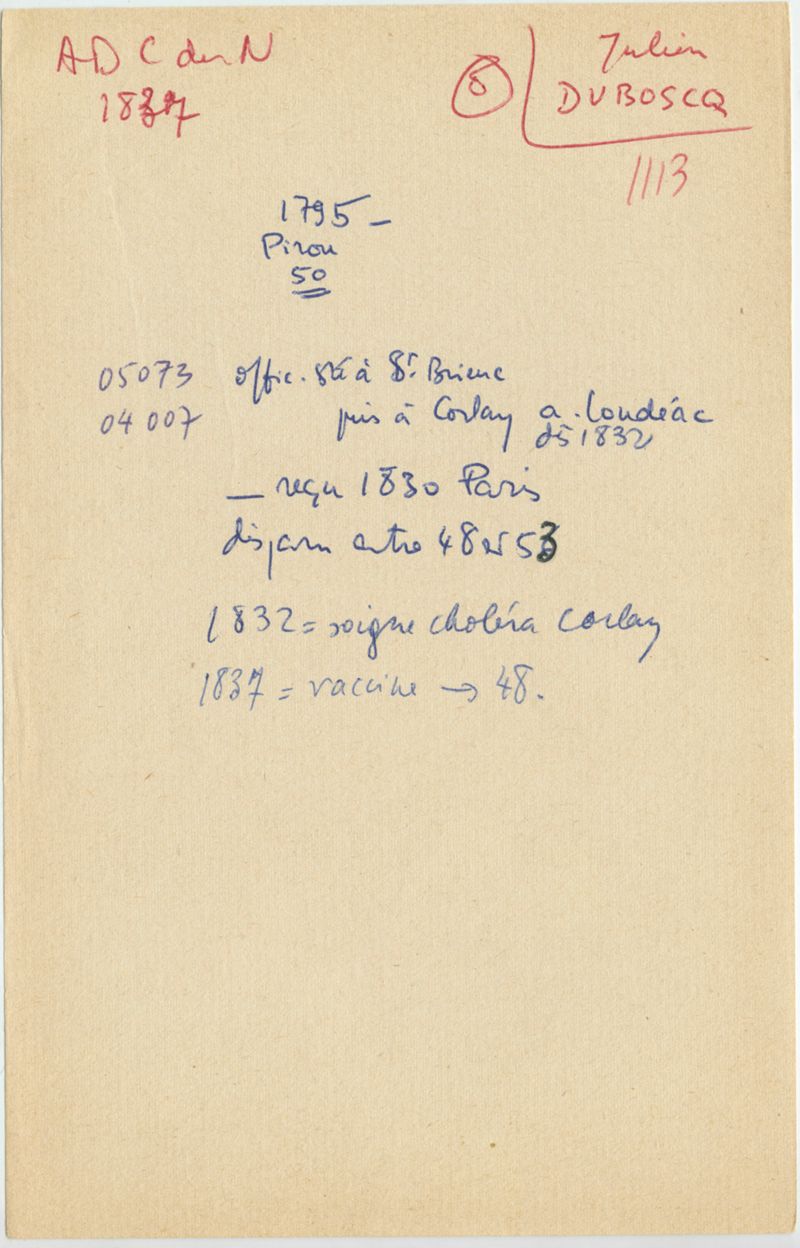 A D C du N
1837
8
Julien
DUBOSCQ
1113
1795 -
Pirou
50
05073 offic. Sté à St. Brieuc
04 007 puis à Corlay a. Loudéac
dès 1832
— reçu 1830 Paris
disparu entre 48 et 53
1832 = soigne choléra Corlay
1837 = vaccine → 48.